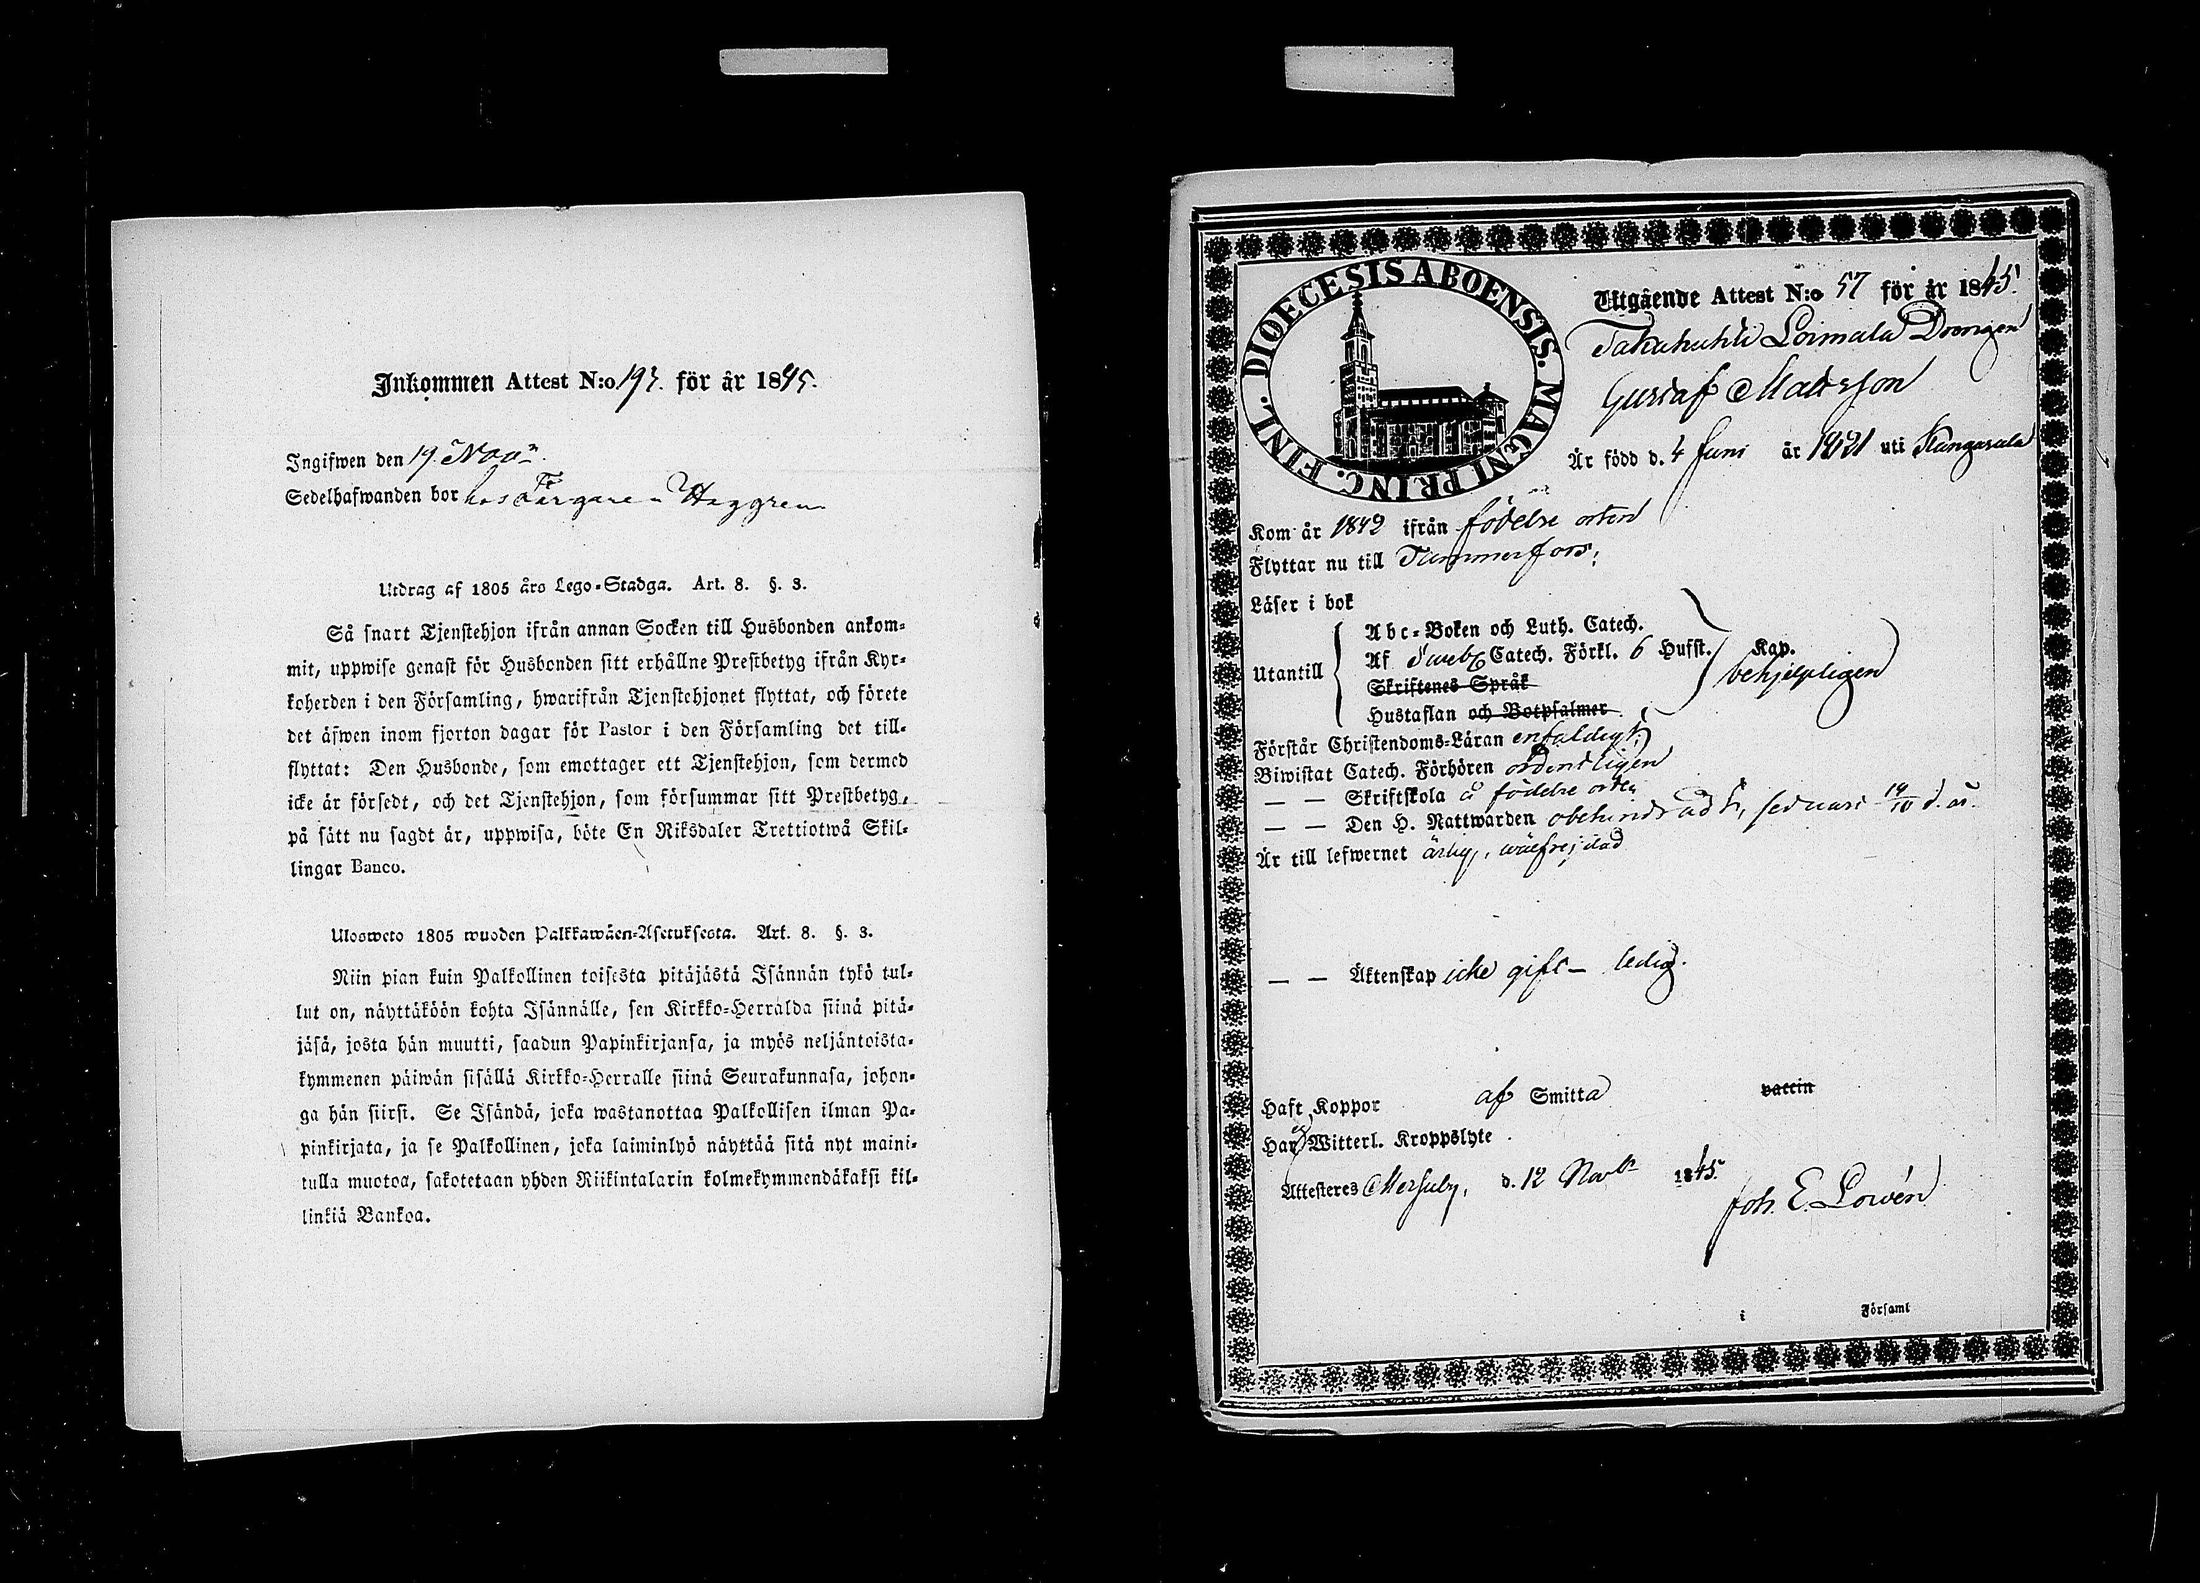 Inkommen Attest N:o 193. för år 1845.
Ingifwen den 19. Nov.
Sedelhafwanden bor hos Färgare Haggren
Utdrag af 1805 års Lego-Stadga. Art. 8. §. 3.
Så snart Tjenstehjon ifrån annan Socken till Husbonden ankom-
mit, uppwise genast för Husbonden sitt erhållne Prestbetyg ifrån Kyr-
koherden i den Församling, hwarifrån Tjenstehjonet flyttat, och förete
det äfwen inom fjorton dagar för Pastor i den Församling det till-
flyttat: Den Husbonde, som emottager ett Tjenstehjon, som dermed
icke är försedt, och det Tjenstehjon, som försummar sitt Prestbetyg,
på sätt nu sagdt är, uppwisa, böte En Riksdaler Trettiotwå Skil-
lingar Banco.
Ulosweto 1805 wuoden Palkkawäen-Asetuksesta. Art. 8. §. 3.
Niin pian kuin Palkollinen toisesta pitäjästä Isännän tykö tul-
lut on, näyttäköön kohta Isännälle, sen Kirkko-Herralda siinä pitä-
jäsä, josta hän muutti, saadun Papinkirjansa, ja myös neljäntoista-
kymmenen päiwän sisällä Kirkko-Herralle siinä Seurakunnasa, johon-
ga hän siirsi. Se Isändä, joka wastanottaa Palkollisen ilman Pa-
pinkirjata, ja se Palkollinen, joka laiminlyö näyttää sitä nyt maini-
tulla muotoa, sakotetaan yhden Riikintalarin kolmekymmendäkaksi kil-
linkiä Bankoa.
DIOECESIS ABOENSIS. MAGNI PRINC. FINL.
Utgående Attest N:o 57 för år 1845.
Takahuhti Loimala Drengen
Gustaf Matsson
Är född d. 4 Juni år 1821 uti Kangasala
Kom år 1842 ifrån födelse orten
Flyttar nu till Tammerfors;
Läser i bok
Utantill
Abc-Boken och Luth. Catech.
Af Sweb. Catech. Förkl. 6 Hufst. Kap.
Skriftenes Språk
Hustaflan och Botpsalmer
behjelpligen
Förstår Christendoms-Läran enfaldigt
Biwistat Catech. Förhören ordentligen
— — Skriftskola å födelse orten
— — Den H. Nattwarden obehindradt, sednast 19/10 d. å.
Är till lefwernet ärlig, wälfrejdad
— — Äktenskap icke gift - ledig.
Haft Koppor af Smitta vaccin
Har ej Witterl. Kroppslyte
Attesteres Messuby, d. 12 Novbr 1845.
Joh. E. Lowén
i Församl